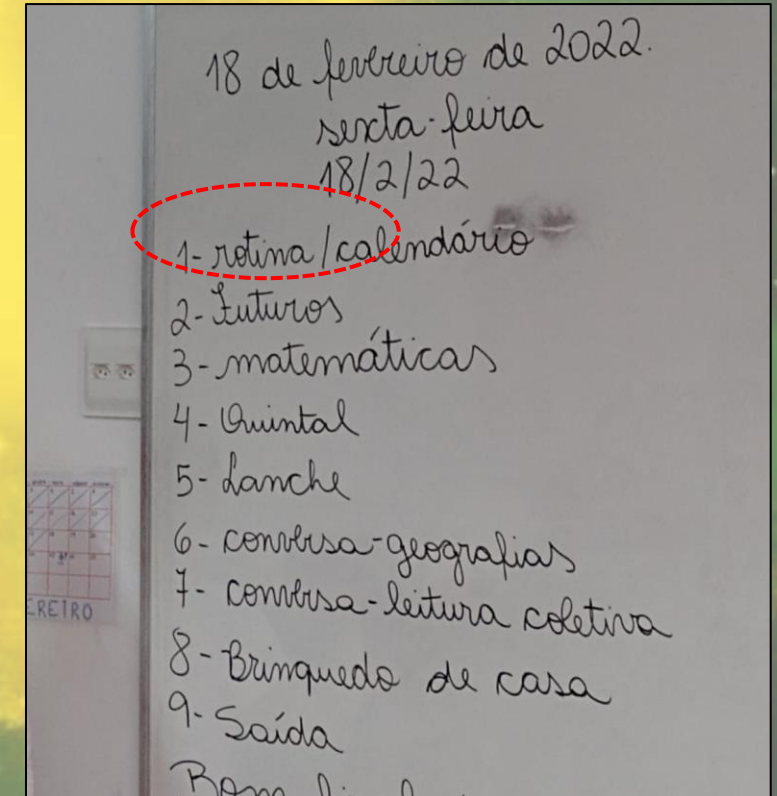 18 de fevereiro de 2022.
sexta-feira
18/2/22
1- rotina/calendário
2- Futuros
3- matemáticas
4- Quintal
5- Lanche
6- conversa-geografias
7- conversa-leitura coletiva
8- Brinquedo de casa
9- Saída
Bom
EREIRO